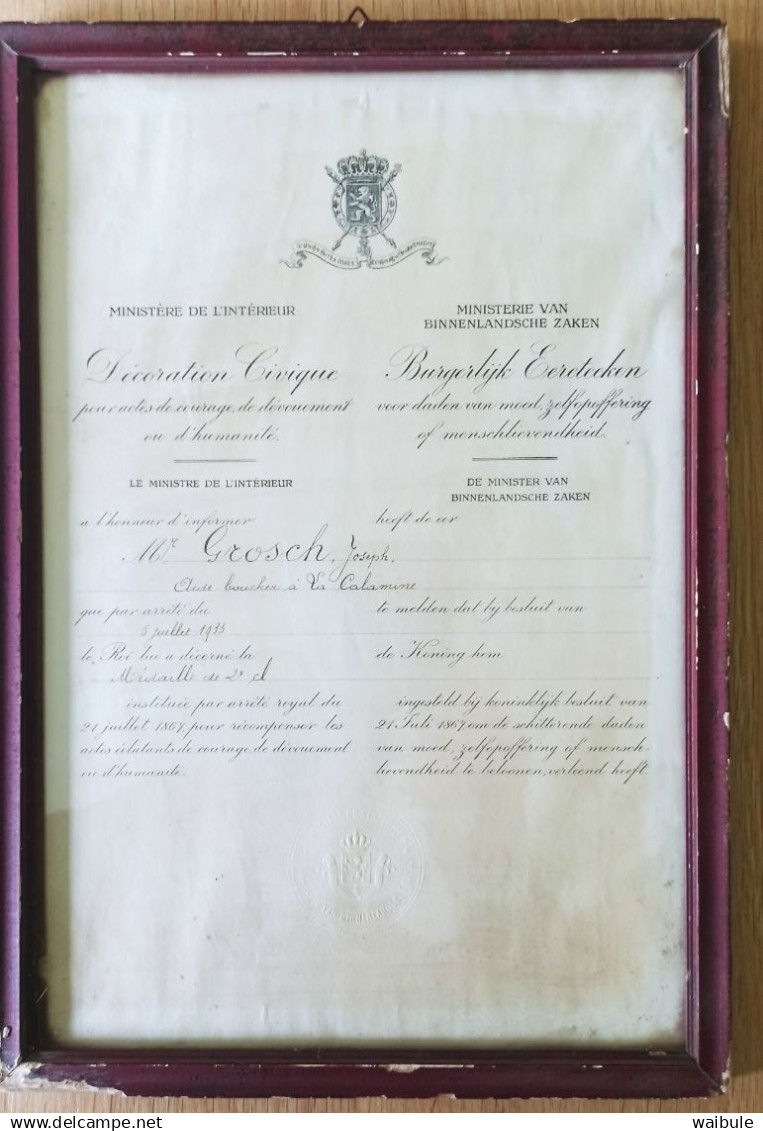 MINISTÈRE DE L'INTÉRIEUR
Décoration Civique
pour actes de courage, de dévouement
ou d'humanité.
LE MINISTRE DE L'INTÉRIEUR
MINISTERIE VAN
BINNENLANDSCHE ZAKEN
Burgerlijk Eereteeken
voor daden van moed, zelfopoffering
of menschlievendheid.
DE MINISTER VAN
BINNENLANDSCHE ZAKEN
a l'honneur d'informer heeft de eer
Mr Grosch, Joseph,
boucher à La Calamine
que par arrêté du te melden dat bij besluit van
6 juillet 1933
le Roi lui a décerné la de Koning hem
Médaille de 2e cl
instituée par arrêté royal du
21 juillet 1867, pour récompenser les
actes éclatants de courage, de dévouement
ou d'humanité.
ingesteld bij koninklijk besluit van
21 Juli 1867, om de schitterende daden
van moed, zelfopoffering of mensch-
lievendheid te beloonen, verleend heeft.
delcampe.net
waibule